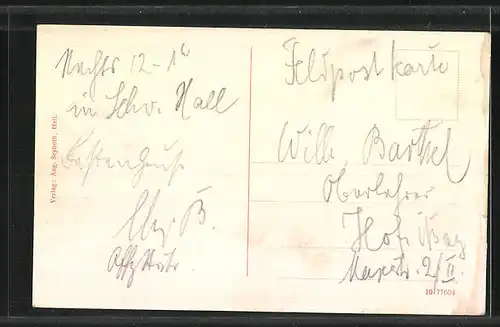 Nachts 12-1h
in Schw. Hall
Besten Gruß
B.
Verlag: Aug. Seyboth, Hall.
Feldpostkarte
Willi Barthel
Oberlehrer
Hof i/Bay
Maxstr. 2/II.
10 77604